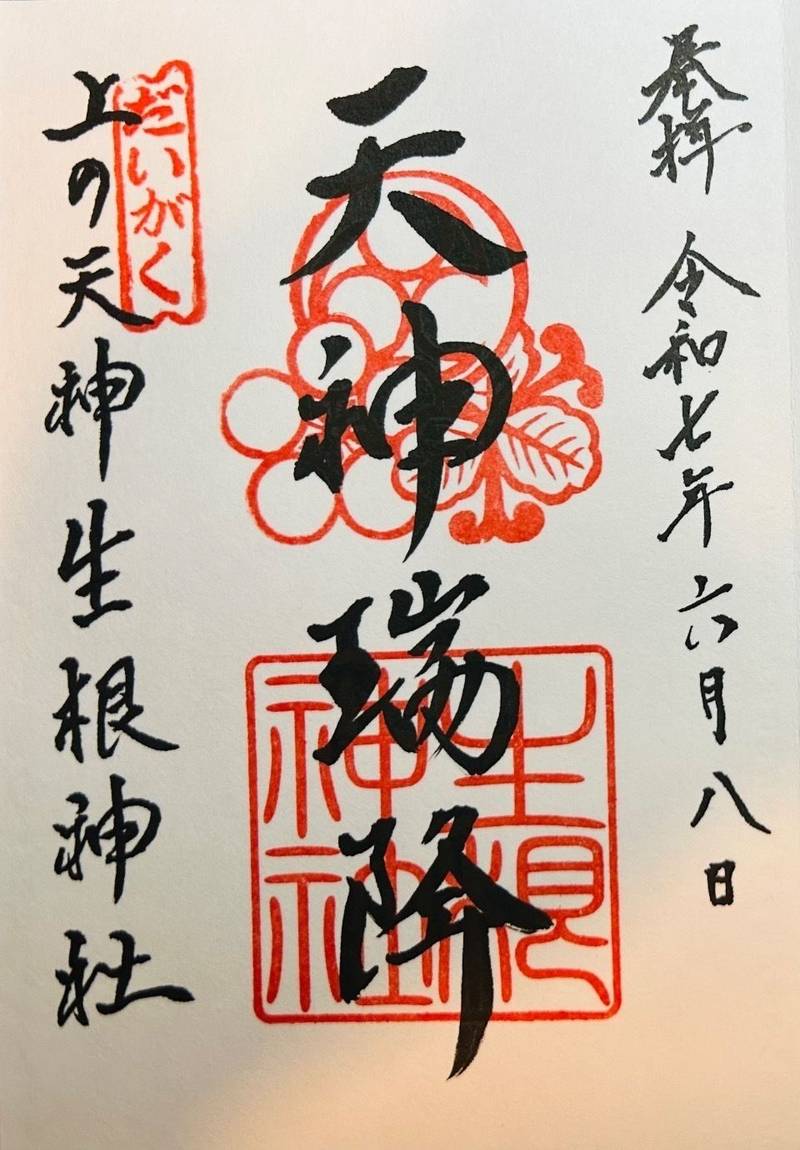 奉拝 令和七年 六月八日
天神瑞降
生根神社
だいがく
上の天神生根神社